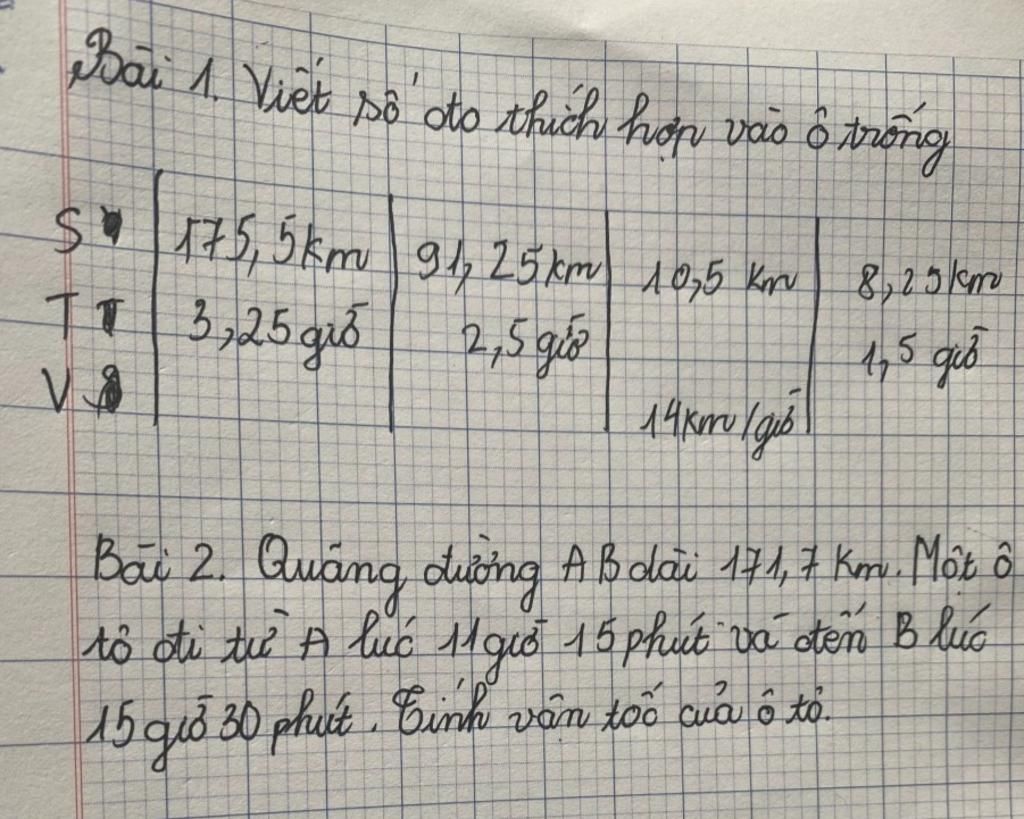 Bài 1. Viết số đo thích hợp vào ô trống
S 175,5km 91,25km 10,5 km 8,25km
T 3,25 giờ 2,5 giờ 1,5 giờ
V 14km/giờ
Bài 2. Quãng đường AB dài 171,7 km. Một ô
tô đi từ A lúc 11 giờ 15 phút và đến B lúc
15 giờ 30 phút. Tính vận tốc của ô tô.